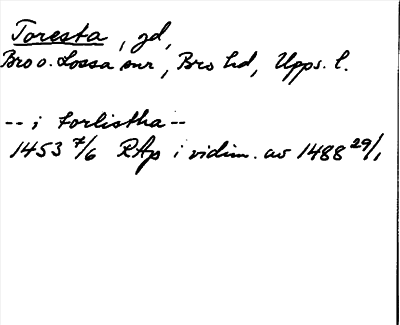 Toresta, gd,
Bro o. Lossa snr, Bro hd, Upps. l.
-- i torlistha --
1453 7/6 RAp i vidim. av 1488 29/1